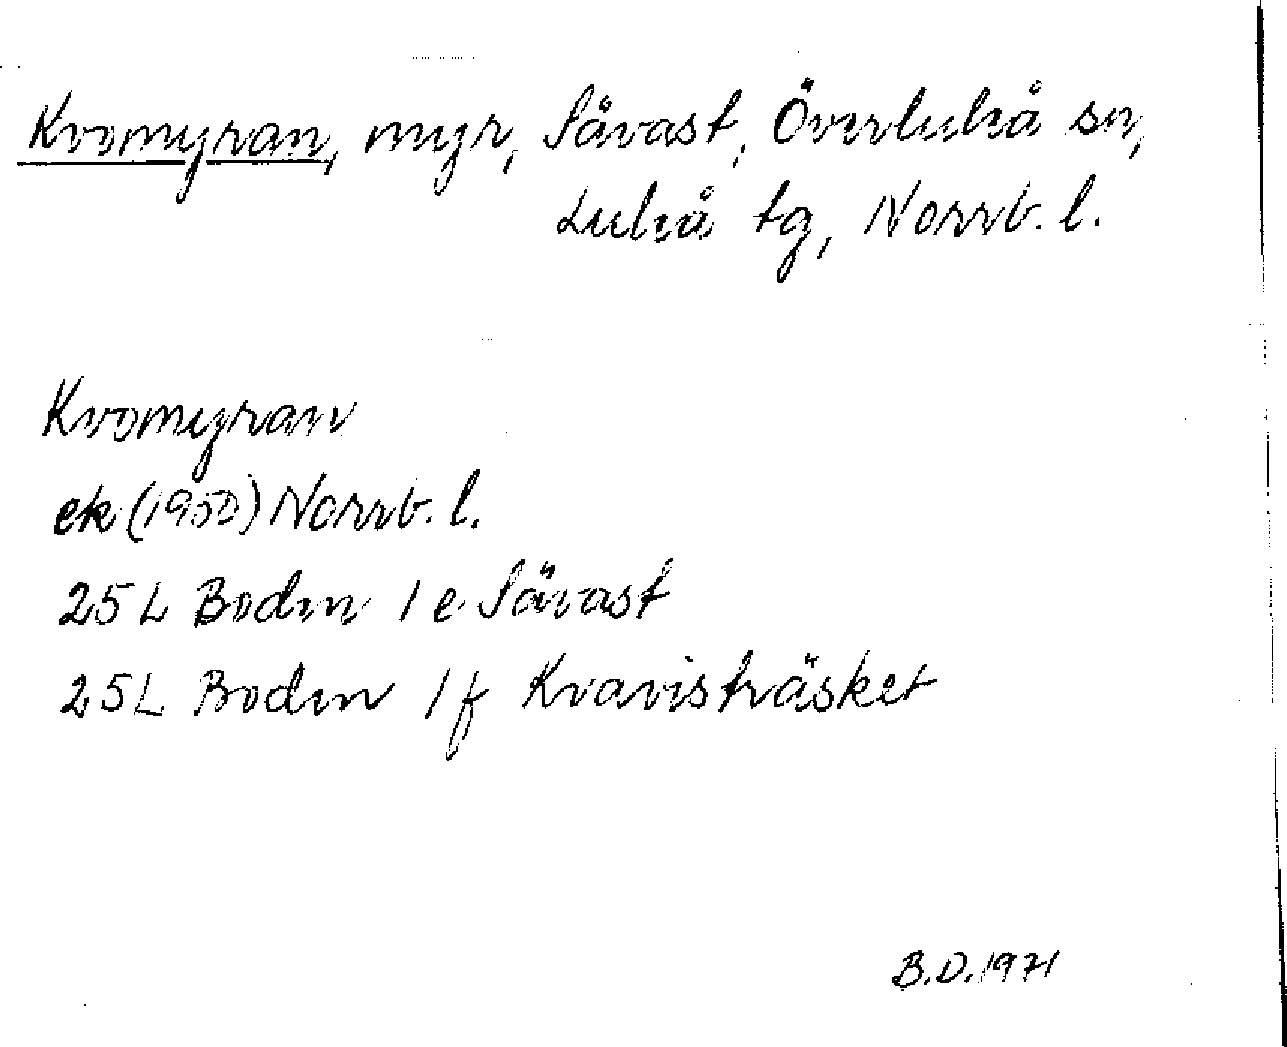 Kvomyran, myr, Sävast, Överluleå sn,
Luleå tg, Norrb. l.
Kvomyran
ek (1950) Norrb. l.
25 L Boden 1 e Sävast
25 L Boden 1 f Kvavisträsket
B.D. 1971